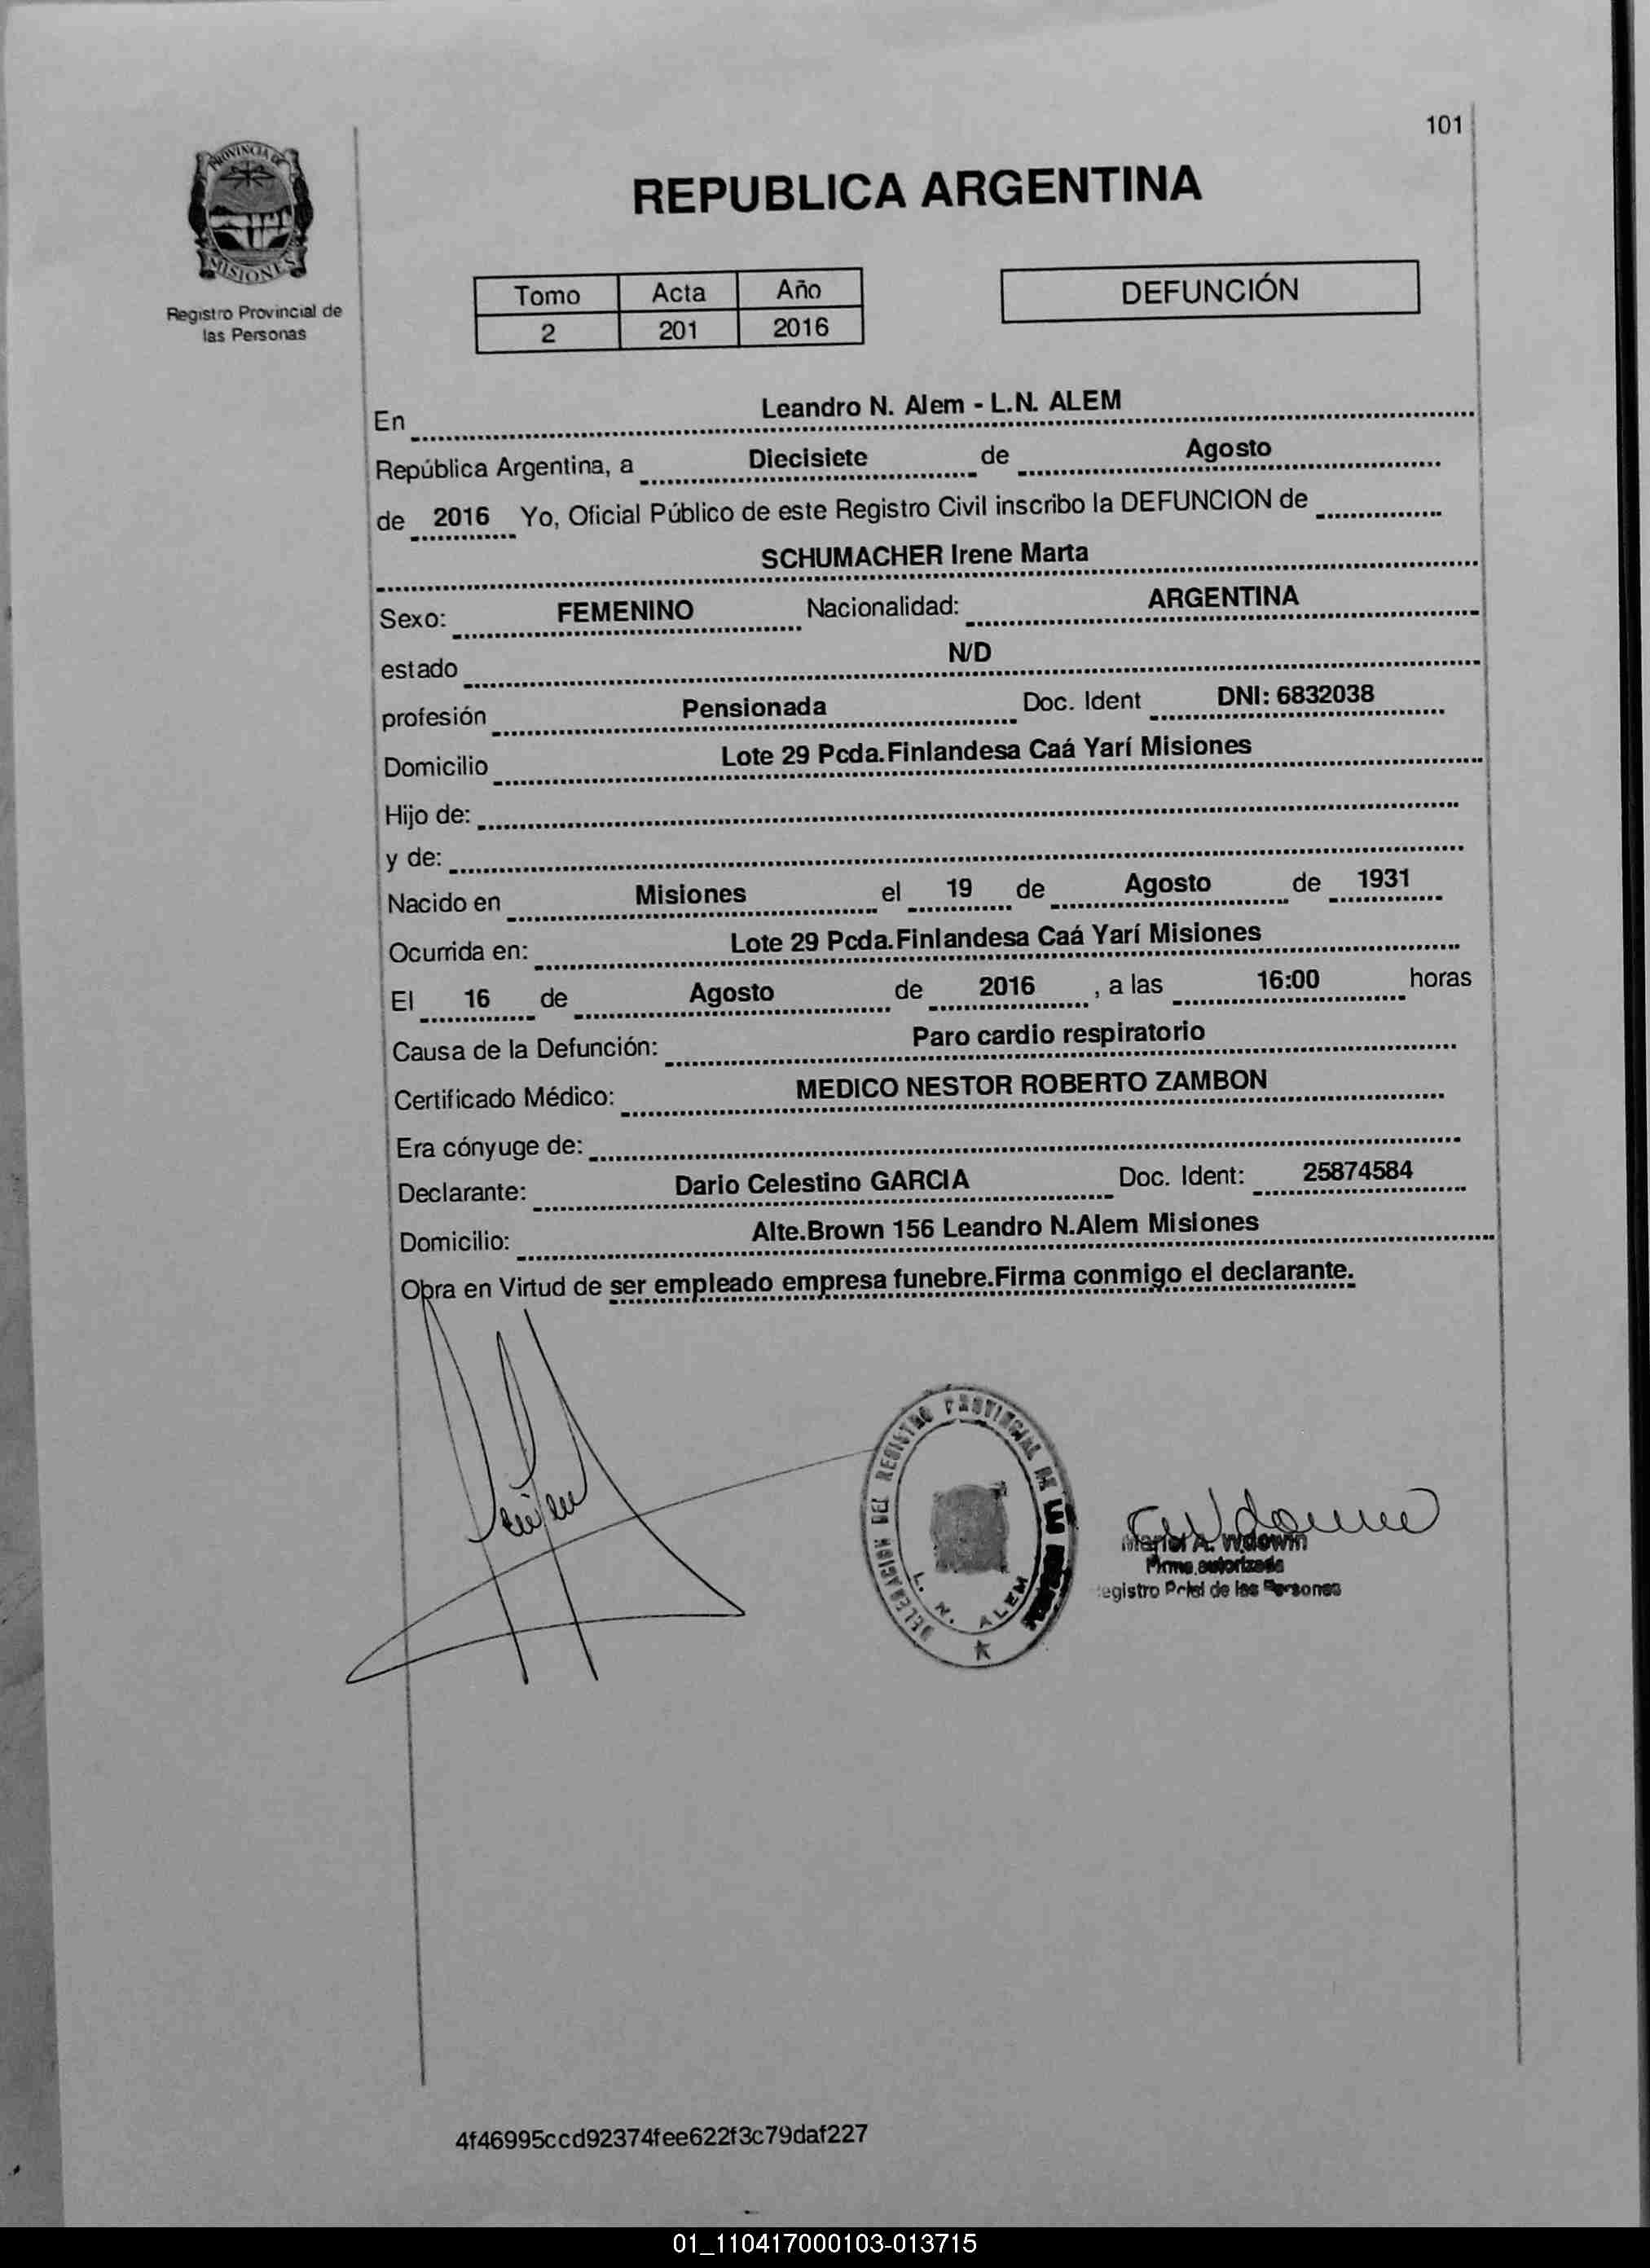 101
PROVINCIA DE
MISIONES
Registro Provincial de
las Personas
REPUBLICA ARGENTINA
Tomo Acta Año
2 201 2016
DEFUNCIÓN
En Leandro N. Alem - L.N. ALEM
República Argentina, a Diecisiete de Agosto
de 2016 Yo, Oficial Público de este Registro Civil inscribo la DEFUNCION de
SCHUMACHER Irene Marta
Sexo: FEMENINO Nacionalidad: ARGENTINA
estado N/D
profesión Pensionada Doc. Ident DNI: 6832038
Domicilio Lote 29 Pcda.Finlandesa Caá Yarí Misiones
Hijo de:
y de:
Nacido en Misiones el 19 de Agosto de 1931
Ocurrida en: Lote 29 Pcda.Finlandesa Caá Yarí Misiones
El 16 de Agosto de 2016 , a las 16:00 horas
Causa de la Defunción: Paro cardio respiratorio
Certificado Médico: MEDICO NESTOR ROBERTO ZAMBON
Era cónyuge de:
Declarante: Dario Celestino GARCIA Doc. Ident: 25874584
Domicilio: Alte.Brown 156 Leandro N.Alem Misiones
Obra en Virtud de ser empleado empresa funebre.Firma conmigo el declarante.
DELEGACION DEL REGISTRO PROVINCIAL DE
L. N. ALEM
A. Wdowin
Firma autorizada
egistro Pcial de las Personas
4f46995ccd92374fee622f3c79daf227
01_110417000103-013715